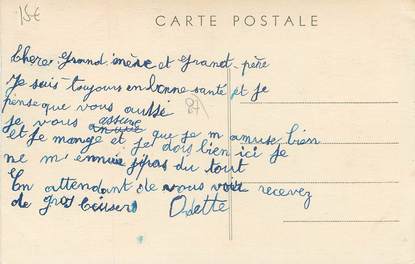 15€
CARTE POSTALE
Chere Grand mère et Grand-père
Je suis toujours en bonne santé et je
pense que vous aussi
je vous assure
et je mange et que je m amuse bien
et je dois bien ici je
ne m'ennuie pas du tout
En attendant de vous voir recevez
de gros Odette